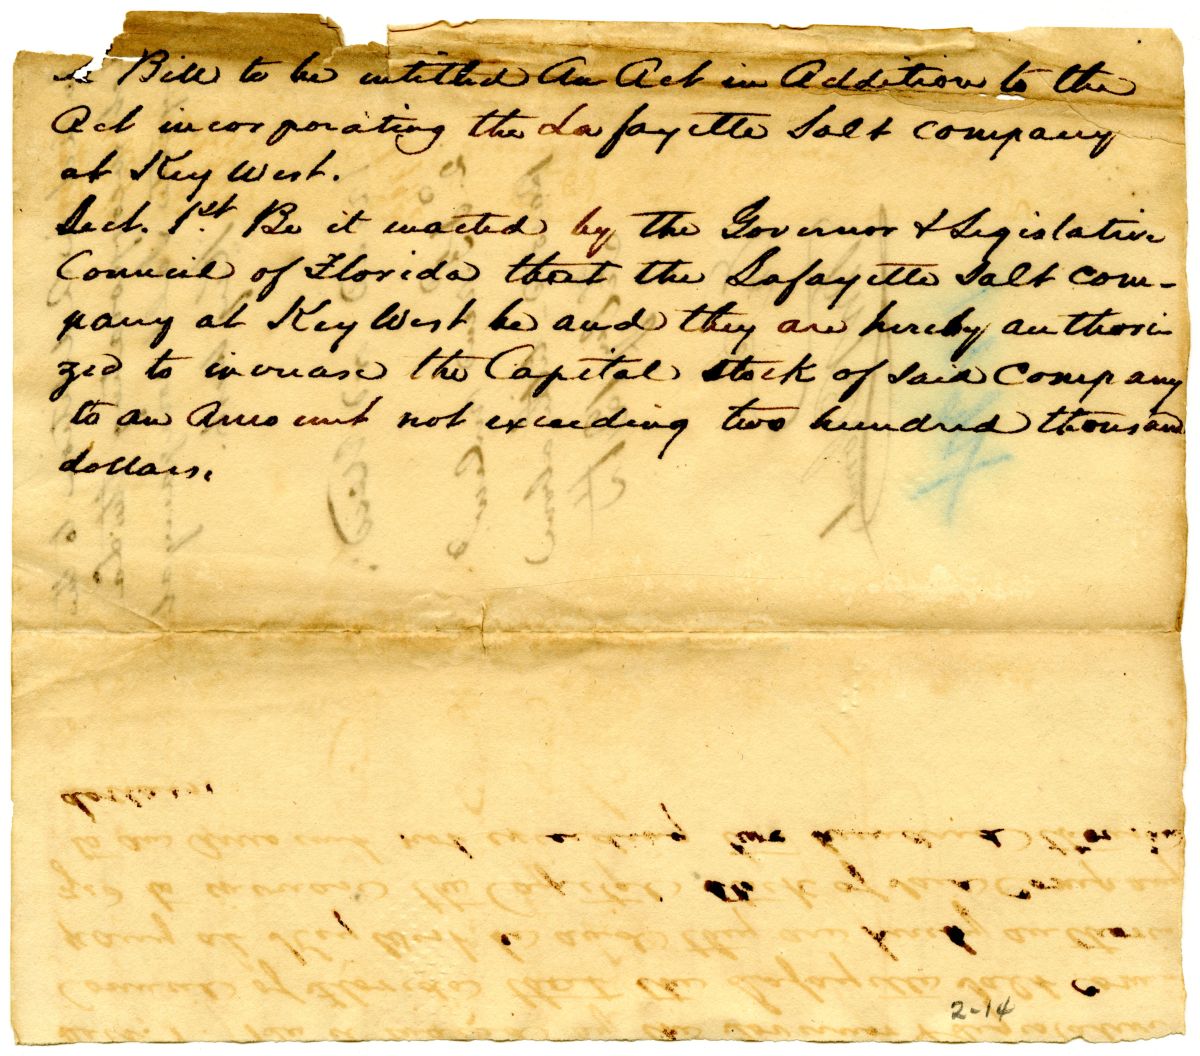 A Bill to be intitled An Act in Addition to the
Act incorporating the Lafayette Salt company
at Key West.
Sect. 1st. Be it enacted by the Governor & Legislative
Council of Florida that the Lafayette Salt com-
pany at Key West be and they are hereby authori
zed to increase the Capital stock of said Company
to an Amount not exceeding two hundred thousand
dollars.
2-14